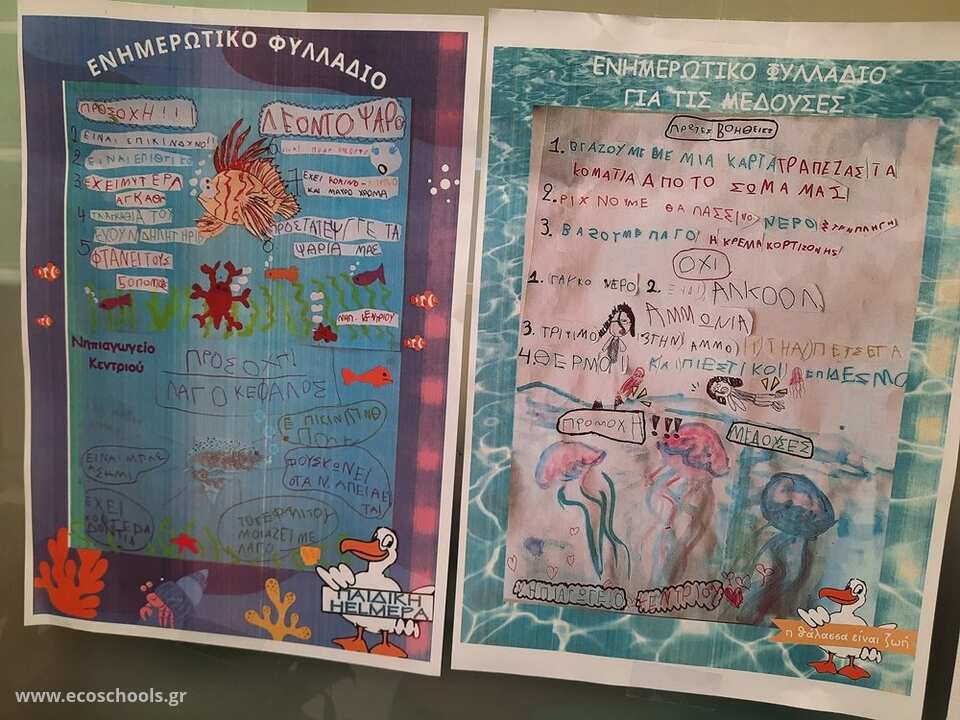 ΕΝΗΜΕΡΩΤΙΚΟ ΦΥΛΛΑΔΙΟ
ΠΡΟΣΟΧΗ!!!
ΛΕΟΝΤΟΨΑΡΟ
1 ΕΙΝΑΙ ΕΠΙΚΙΝΔΥΝΟ!!
2 ΕΙΝΑΙ ΕΠΙΘΤΙΚΟ
3 ΕΧΕΙ ΜΥΤΕΡΑ
ΑΓΚΑΘΙΑ
4 ΤΑ ΑΓΚΑΘΙΑ ΤΟΥ
ΕΧΟΥΝ ΔΗΛΗΤΗΡΙΟ
5 ΦΤΑΝΕΙ ΤΟΥΣ
50 ΠΟΝΤΟΥΣ
7 ΕΧΕΙ ΚΟΚΙΝΟ
ΚΑΙ ΜΑΥΡΟ ΧΡΩΜΑ
ΠΡΟΣΤΑΤΕΨΤΕ ΤΑ
ΨΑΡΙΑ ΜΑΣ
ΝΗΠ. ΚΕΝΤΡΙΟΥ
Νηπιαγωγείο
Κεντριού
ΠΡΟΣΟΧΗ!
ΛΑΓΟΚΕΦΑΛΟΣ
ΕΙΝΑΙ ΜΠΛΕ
ΑΣΗΜΙ
ΦΟΥΣΚΩΝΕΙ
ΟΤΑΝ ΑΠΕΙΛΕΙ
ΤΑΙ
ΕΧΕΙ
ΔΟΝΤΙΑ
ΤΟ ΚΕΦΑΛΙ ΤΟΥ
ΜΟΙΑΖΕΙ ΜΕ
ΛΑΓΟ
ΠΑΙΔΙΚΗ
HELMEPA
ΕΝΗΜΕΡΩΤΙΚΟ ΦΥΛΛΑΔΙΟ
ΓΙΑ ΤΙΣ ΜΕΔΟΥΣΕΣ
ΠΡΩΤΕΣ ΒΟΗΘΕΙΕΣ
1. ΒΓΑΖΟΥΜΕ ΜΕ ΜΙΑ ΚΑΡΤΑ ΤΡΑΠΕΖΑΣ ΤΑ
ΚΟΜΑΤΙΑ ΑΠΟ ΤΟ ΣΩΜΑ ΜΑΣ
2. ΡΙΧΝΟΥΜΕ ΘΑΛΑΣΣΙΝΟ ΝΕΡΟ ΣΤΗΝ ΠΛΗΓΗ
3. ΒΑΖΟΥΜΕ ΠΑΓΟ Η ΚΡΕΜΑ ΚΟΡΤΙΖΟΝΗΣ
ΟΧΙ
1. ΓΛΥΚΟ ΝΕΡΟ 2. ΑΛΚΟΟΛ
ΑΜΜΩΝΙΑ
3. ΤΡΙΨΙΜΟ ΣΤΗΝ ΑΜΜΟ ΠΕΤΣΕΤΑ
4. ΘΕΡΜΟ ΚΑΙ ΠΙΕΣΤΙΚΟ ΕΠΙΔΕΣΜΟ
ΠΡΟΣΟΧΗ!!!
ΜΕΔΟΥΣΕΣ
ΝΗΠΙΑΓΩΓΕΙΟ ΚΕΝΤΡΙΟΥ
η θάλασσα είναι ζωή
www.ecoschools.gr